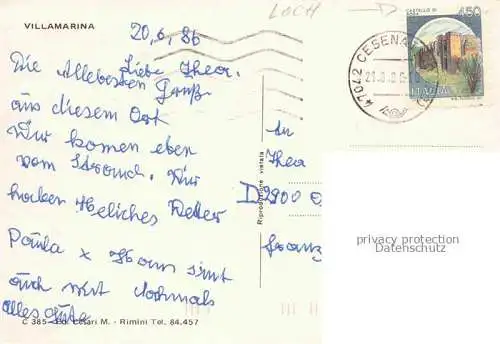 VILLAMARINA
20,6,86
LOCH
CASTELLO DI
450
ITALIA
47042 CESENA
Liebe Thea.
Die Allebesten Gruß
aus diesem Ort
Wir komen eben
vom Strand. Wir
haben Heliches Wetter
Paula x Hans sint
auch mit Nochmals
alles Gute
An
Thea
D 2900
Franz
Riproduzione vietata
privacy protection
Datenschutz
C 385 - Ed. Cesari M. - Rimini Tel. 84.457